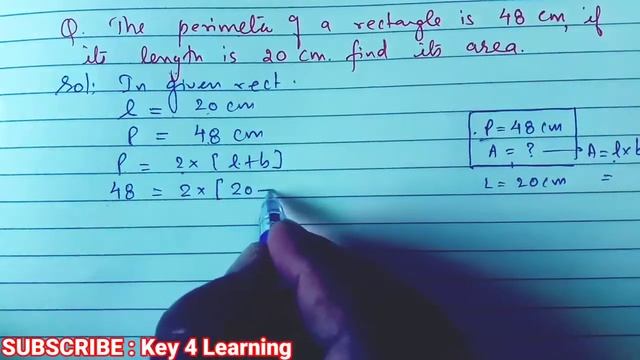 Q. The perimeter of a rectangle is 48 cm, if
its length is 20 cm. find its area.
Sol: In given rect.
l = 20 cm
P = 48 cm
P = 2 × [ l + b ]
48 = 2 × [ 20 –
P = 48 cm
A = ? — A = l × b
L = 20 cm =
SUBSCRIBE : Key 4 Learning